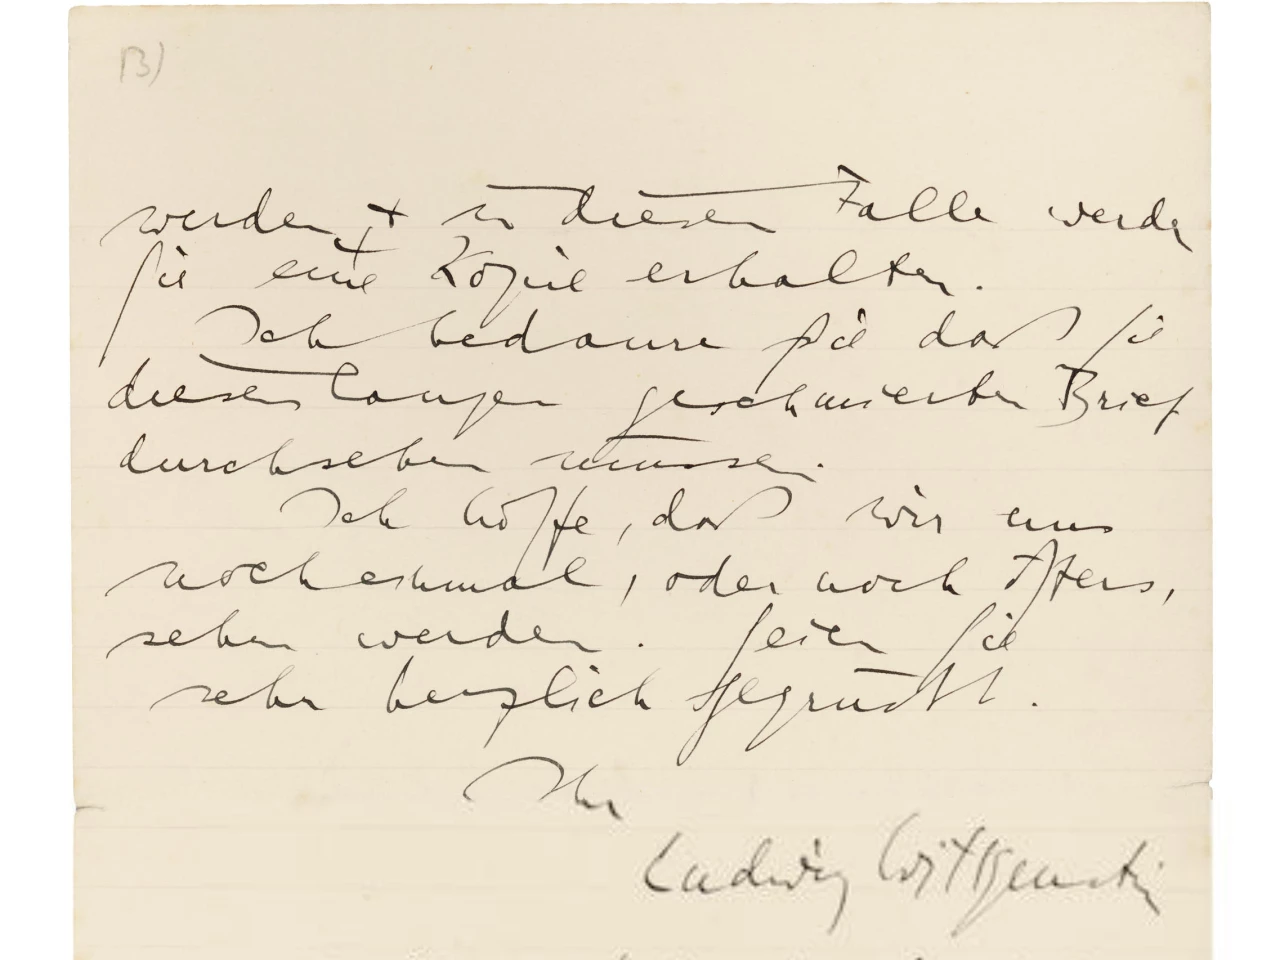 13)
werden, + in diesem Falle werden
Sie eine Kopie erhalten.
Ich bedaure sie daß Sie
diesen langen geschmierten Brief
durchsehen müssen.
Ich hoffe, daß wir uns
noch einmal, oder noch öfters,
sehen werden. Seien Sie
sehr herzlich gegrüßt.
Ihr
Ludwig Wittgenstein